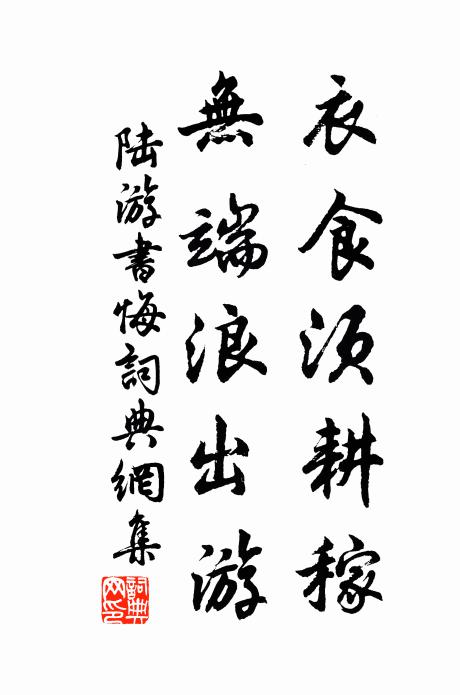 衣食須耕稼
無端浪出游
陆游書悔詞典網集
詞典網印